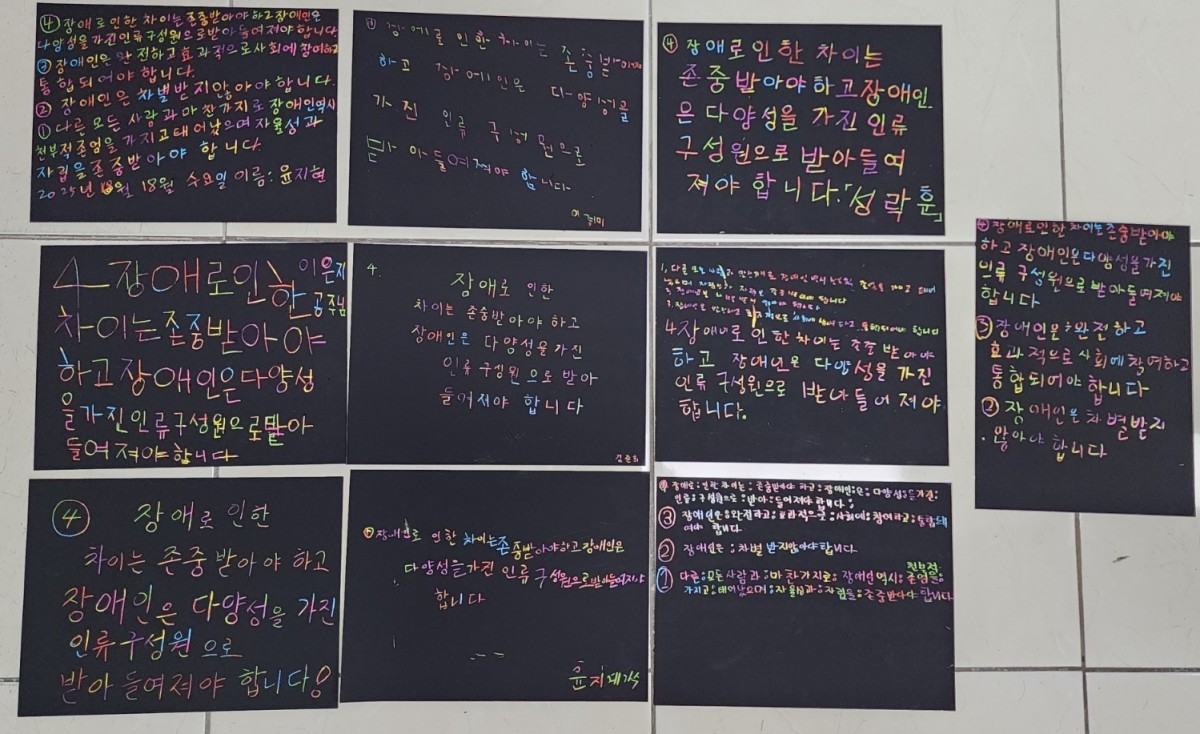 ④ 장애로인한 차이는존중받아야하고장애인은
다양성을가진인류구성원으로받아들여져야합니다
③ 장애인은 완전하고효과적으로사회에참여하고
통합되어야 합니다.
② 장애인은 차별받지않아야합니다.
① 다른모든사람과마찬가지로장애인역시
천부적존엄을가지고태어났으며자율성과
자립을존중받아야 합니다.
2025년 월 18일 수요일 이름: 윤지현
장애로 인한 차이는 존중받아야
하고 장애인은 다양성을
가진 인류 구성원으로
받아들여져야 합니다
④ 장애로인한 차이는
존중받아야하고장애인
은 다양성을 가진인류
구성원으로 받아들여
져야합니다.「성락훈」
4 장애로인한 이은지
공주님
차이는존중받아야
하고장애인은다양성
을가진인류구성원으로받아
들여져야합니다
4.
장애로 인한
차이는 존중받아야 하고
장애인은 다양성을 가진
인류구성원으로 받아
들여져야 합니다
4 장애로인한차이는존중받아야
하고 장애인은 다양성을 가진
인류구성원으로 받아들어져야
합니다.
④ 장애로인한차이는존중받아야
하고장애인은다양성을가진
인류구성원으로받아들여져야
합니다
③ 장애인은완전하고
효과적으로사회에참여하고
통합되어야합니다
② 장애인은차별받지
않아야합니다
④ 장애로 인한
차이는 존중받아야 하고
장애인은 다양성을 가진
인류구성원으로
받아들여져야 합니다!
장애인로 인한 차이는존중받아야하고장애인은
다양성을가진 인류 구성원으로받아들여져야
합니다
장애로 인한차이는 존중받아야 하고 장애인은 다양성을가진
인류 구성원으로 받아 들어져야 합니다
③ 장애인은 완전하고 효과적으로 사회에 참여하고 통합되
어야 합니다
② 장애인은 차별받지않아야합니다.
① 다른 모든사람과 마찬가지로 장애인역시 천부적 존엄을
가지고 태어났으며 자율성과 자립을 존중받아야 합니다